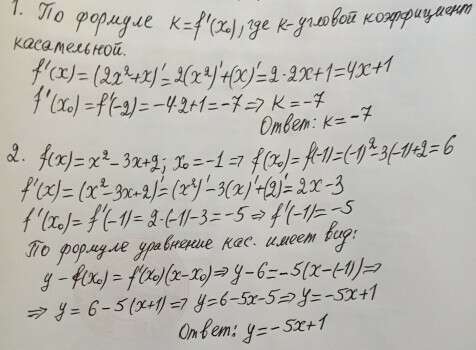 1. По формуле k=f'(x₀), где k-угловой коэффициент
касательной.
f'(x)=(2x²+x)'=2(x²)'+(x)'=2·2x+1=4x+1
f'(x₀)=f'(-2)=-4·2+1=-7⇒k=-7
Ответ: k=-7
2. f(x)=x²-3x+2; x₀=-1⇒f(x₀)=f(-1)=(-1)²-3(-1)+2=6
f'(x)=(x²-3x+2)'=(x²)'-3(x)'+(2)'=2x-3
f'(x₀)=f'(-1)=2·(-1)-3=-5⇒f'(-1)=-5
По формуле уравнение кас. имеет вид:
y-f(x₀)=f'(x₀)(x-x₀)⇒y-6=-5(x-(-1))⇒
⇒y=6-5(x+1)⇒y=6-5x-5⇒y=-5x+1
Ответ: y=-5x+1